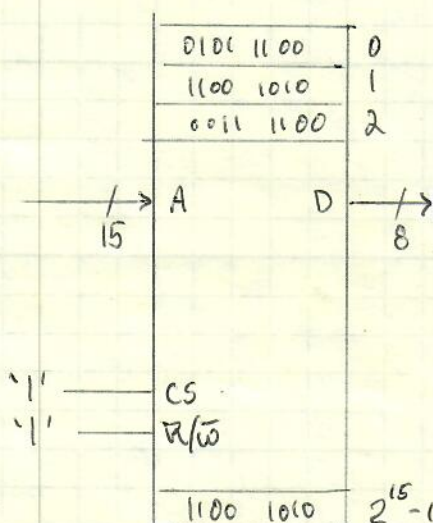 0101 1100 0
1100 1010 1
0011 1100 2
A D
15 8
'1' CS
'1' R/W̅
1100 1010 2¹⁵-1